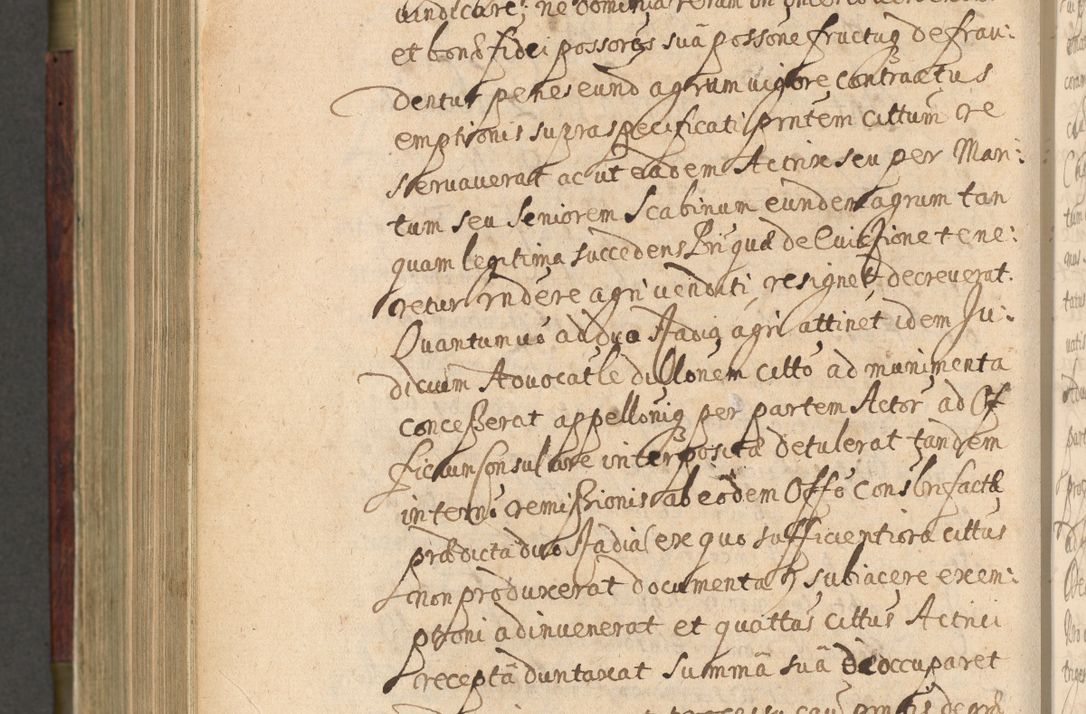 vindicare; ne dominia rerum in incerto
et bonæ fidei possores suâ possone fructuq defrau:
dentur penes eund agrum vigore contractus
emptionis supra specificati prntem cittum re
servaverat ac ut eadem Actrix seu per Mari:
tum seu Seniorem Scabinum eundem agrum tan
quam legitima succedens Bri quæ de Evictione tene:
retur rndêre agri venditi resignet decreverat.
Quantum vo ad duo Stadia agri attinet idem Ju:
dicium Advocatle dillonem citto ad munimenta
conceßerat appelloniq per partem Actor ad Of
ficium Consulare interpositæ detulerat tandem
in termo remißionis ab eodem Offo Conslri factæ
prædicta duo Stadia ex quo sufficientiora cittus
non produxerat documenta subiacere exem:
ptioni adinvenerat et quattus cittus Actrici
receptâ duntaxat summâ suâ deoccuparet